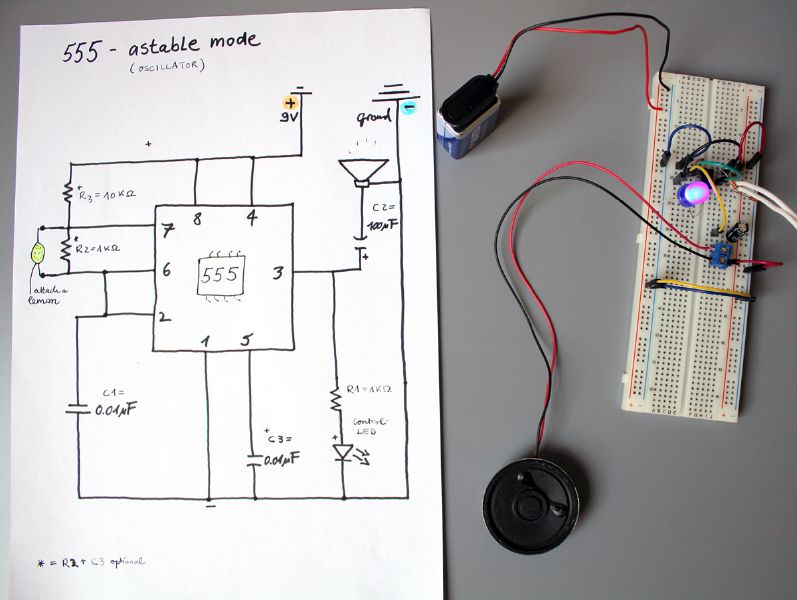 555 - astable mode
(OSCILLATOR)
+
9V
ground
-
+
*R3 = 10KΩ
*R2 = 1KΩ
attach a
lemon
7
8
4
6
555
3
2
1
5
C2=
100µF
+
C1=
0.01µF
*C3=
0.01µF
R1=1KΩ
control-
LED
+
-
* = R2 + C3 optional